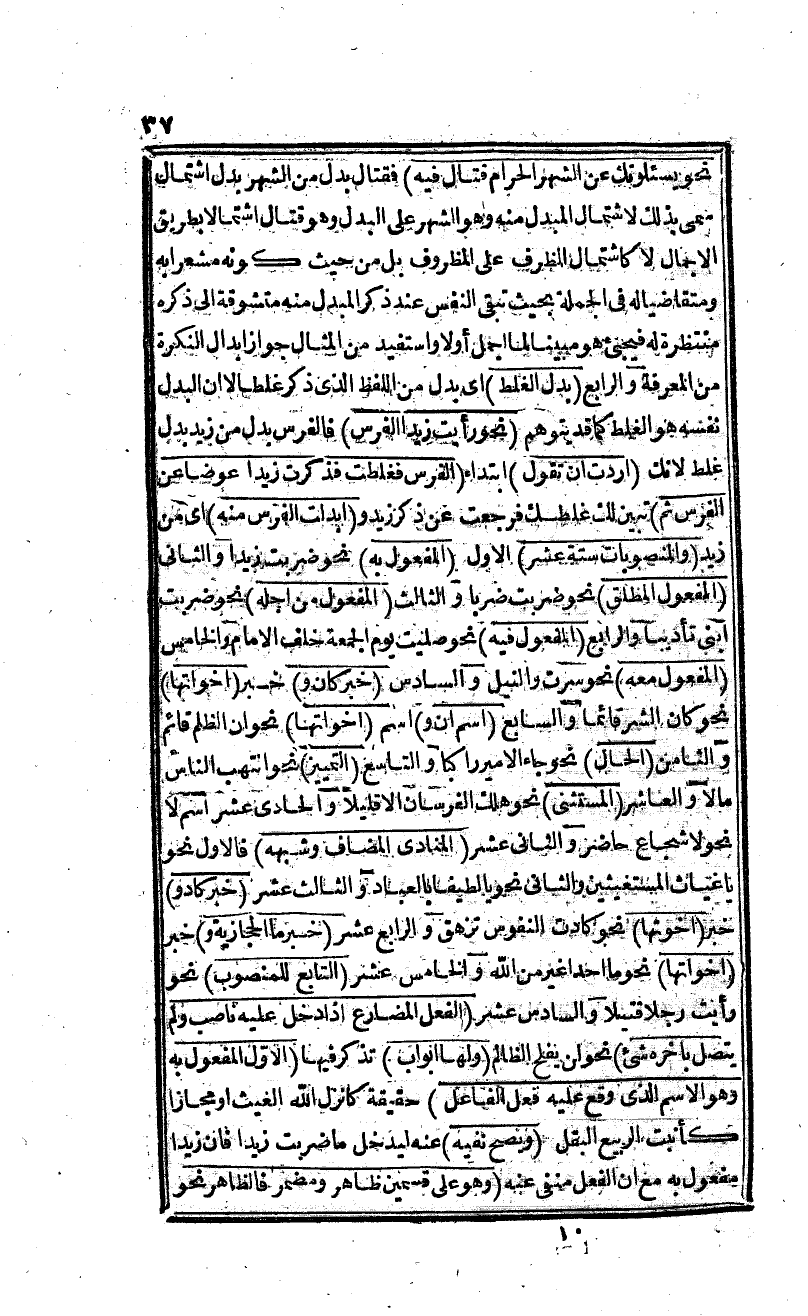 ٣٧
نحو يسئلونك عن الشهر الحرام قتال فيه) فقتال بدل من الشهر بدل اشتمال
سمى بذلك لاشتمال المبدل منه وهو الشهر على البدل وهو قتال اشتمالا بطريق
الاجمال لا كاشتمال الظرف على المظروف بل من حيث كونه مشعرا به
ومتقاضيا له فى الجملة بحيث تبقى النفس عند ذكر المبدل منه متشوقة الى ذكره
منتظرة له فيجئ هو مبينا لما اجمل أولا واستفيد من المثال جواز ابدال النكرة
من المعرفة و الرابع (بدل الغلط) اى بدل من اللفظ الذى ذكر غلطا لا ان البدل
نفسه هو الغلط كما قد يتوهم (نحو رأيت زيدا الفرس) فالفرس بدل من زيد بدل
غلط لانك (اردت ان تقول) ابتداء (الفرس فغلطت فذكرت زيدا عوضا عن
الفرس ثم) تبين لك غلطك فرجعت عن ذكر زيد و(ابدلت الفرس منه) اى من
زيد (والمنصوبات ستة عشر) الاول (المفعول به) نحو ضربت زيدا و الثانى
(المفعول المطلق) نحو ضربت ضربا و الثالث (المفعول من اجله) نحو ضربت
ابنى تأديبا والرابع (المفعول فيه) نحو صليت يوم الجمعة خلف الامام والخامس
(المفعول معه) نحو سرت والنيل و السادس (خبر كان و) خبر (اخواتها)
نحو كان الشهر قائما و السابع (اسم ان و) اسم (اخواتها) نحو ان الظلم قائم
و الثامن (الحال) نحو جاء الامير راكبا و التاسع (التمييز) نحو انتهب الناس
مالا و العاشر (المستثنى) نحو هلك الفرسان الا قليلا و الحادى عشر اسم لا
نحو لا شجاع حاضر و الثانى عشر (المنادى المضاف وشبهه) فالاول نحو
يا غياث المستغيثين والثانى نحو يا لطيفا بالعباد و الثالث عشر (خبر كاد و)
خبر (اخوتها) نحو كادت النفوس تزهق و الرابع عشر (خبر ما الحجازية و) خبر
(اخواتها) نحو ما احد اغير من الله و الخامس عشر (التابع للمنصوب) نحو
رأيت رجلا قتيلا و السادس عشر (الفعل المضارع اذا دخل عليه ناصب ولم
يتصل بآخره شئ) نحو لن يفلح الظالم (ولها ابواب) تذكر فيها (الاول المفعول به
وهو الاسم الذى وقع عليه فعل الفاعل) حقيقة كانزل الله الغيث او مجازا
كأنبت الربيع البقل (ويصح نفيه) عنه ليدخل ما ضربت زيدا فان زيدا
مفعول به مع ان الفعل منفى عنه (وهو على قسمين ظاهر ومضمر فالظاهر نحو
١٠